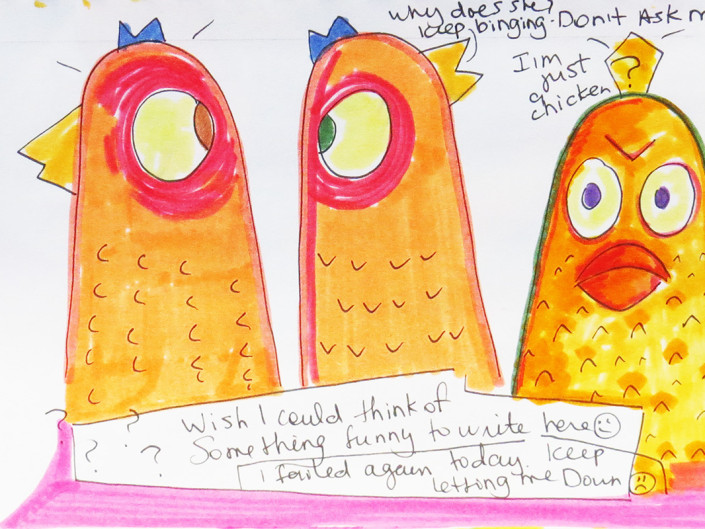 why does she?
keep binging. Don't Ask m
I'm
just
a
chicken
?
? ? ? ?
Wish I could think of
Something funny to write here
I failed again today. keep
letting me Down